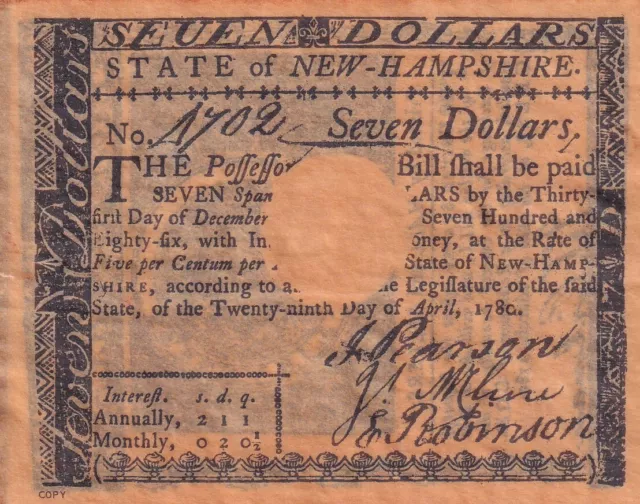 SEVEN DOLLARS
STATE of NEW-HAMPSHIRE.
No. 1702 Seven Dollars,
THE Poſſeſſor Bill ſhall be paid
SEVEN Span LARS by the Thirty-
firſt Day of December Seven Hundred and
Eighty-ſix, with In oney, at the Rate of
Five per Centum per State of NEW-HAMP-
SHIRE, according to a the Legiſlature of the ſaid
State, of the Twenty-ninth Day of April, 1780.
J Pearson
E Robinson
Intereſt. s. d. q.
Annually, 2 1 1
Monthly, 0 2 0½
Seven Dollars
COPY